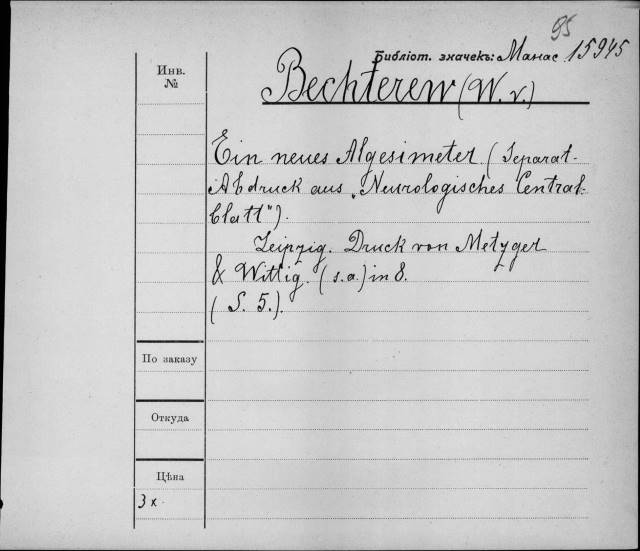 95
Библіот. значекъ: Манас 15945
Инв.
№
Bechterew (W. v.)
Ein neues Algesimeter. (Separat-
Abdruck aus „Neurologisches Central-
blatt").
Leipzig. Druck von Metzger
& Wittig. (s.a.) in 8.
(S. 5.).
По заказу
Откуда
Цѣна
3 к